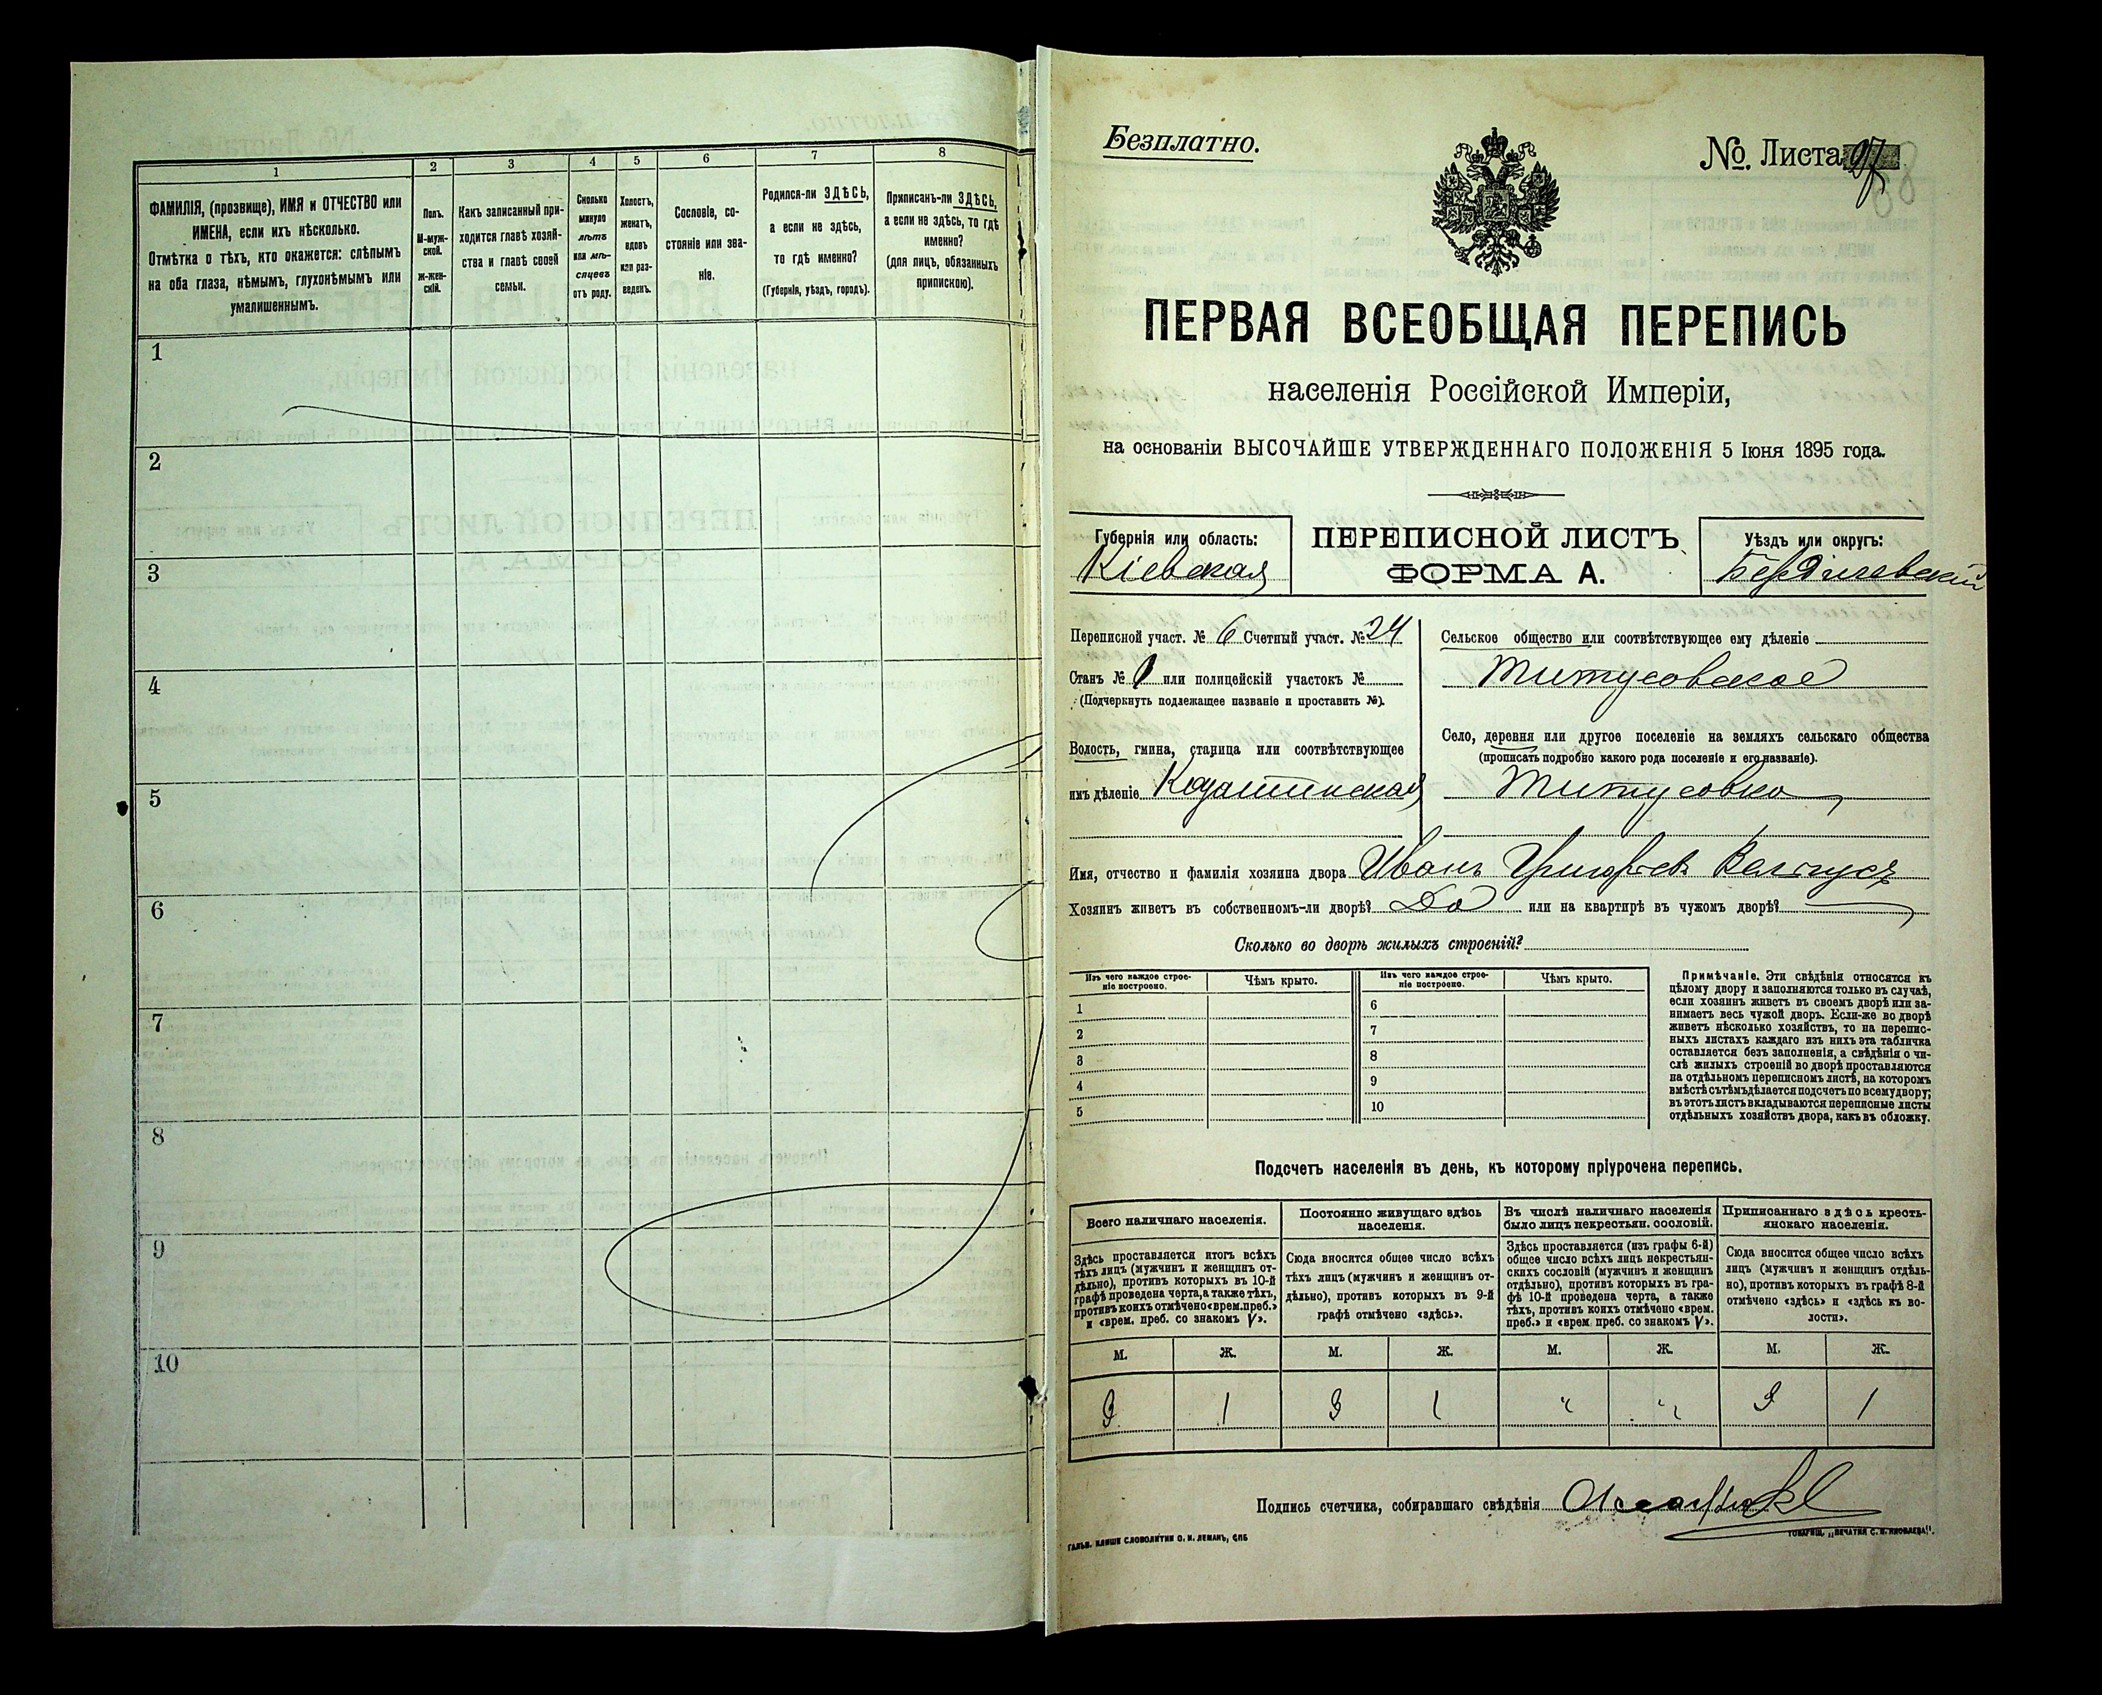 1
2
3
4
5
6
7
8
ФАМИЛІЯ, (прозвище), ИМЯ и ОТЧЕСТВО или
ИМЕНА, если ихъ нѣсколько.
Отмѣтка о тѣхъ, кто окажется: слѣпымъ
на оба глаза, нѣмымъ, глухонѣмымъ или
умалишеннымъ.
Полъ.
М-муж-
ской.
Ж-жен-
скій.
Какъ записанный при-
ходится главѣ хозяй-
ства и главѣ своей
семьи.
Сколько
минуло
лѣтъ
или мѣ-
сяцевъ
отъ роду.
Холостъ,
женатъ,
вдовъ
или раз-
веденъ.
Сословіе, со-
стояніе или зва-
ніе.
Родился-ли ЗДѢСЬ,
а если не здѣсь,
то гдѣ именно?
(Губернія, уѣздъ, городъ).
Приписанъ-ли ЗДѢСЬ,
а если не здѣсь, то гдѣ
именно?
(для лицъ, обязанныхъ
припискою).
1
2
3
4
5
6
7
8
9
10
Безплатно.
№. Листа 97
ПЕРВАЯ ВСЕОБЩАЯ ПЕРЕПИСЬ
населенія Россійской Имперіи,
на основаніи ВЫСОЧАЙШЕ УТВЕРЖДЕННАГО ПОЛОЖЕНІЯ 5 Іюня 1895 года.
Губернія или область:
Кіевская
ПЕРЕПИСНОЙ ЛИСТЪ
ФОРМА А.
Уѣздъ или округъ:
Бердичевскій
Переписной участ. № 6 Счетный участ. № 24
Станъ № 1 или полицейскій участокъ №
(Подчеркнуть подлежащее названіе и проставить №).
Волость, гмина, станица или соотвѣтствующее
имъ дѣленіе Козатинская
Сельское общество или соотвѣтствующее ему дѣленіе
Титусовское
Село, деревня или другое поселеніе на земляхъ сельскаго общества
(прописать подробно какого рода поселеніе и его названіе).
Титусовка
Имя, отчество и фамилія хозяина двора Иванъ Григорьевъ
Хозяинъ живетъ въ собственномъ-ли дворѣ? Да или на квартирѣ въ чужомъ дворѣ?
Сколько во дворѣ жилыхъ строеній?
Изъ чего каждое строе-
ніе построено.
Чѣмъ крыто.
Изъ чего каждое строе-
ніе построено.
Чѣмъ крыто.
1
2
3
4
5
6
7
8
9
10
Примѣчаніе. Эти свѣдѣнія относятся къ
цѣлому двору и заполняются только въ случаѣ,
если хозяинъ живетъ въ своемъ дворѣ или за-
нимаетъ весь чужой дворъ. Если-же во дворѣ
живетъ нѣсколько хозяйствъ, то на перепис-
ныхъ листахъ каждаго изъ нихъ эта табличка
оставляется безъ заполненія, а свѣдѣнія о чи-
слѣ жилыхъ строеній во дворѣ проставляются
на отдѣльномъ переписномъ листѣ, на которомъ
вмѣстѣ съ тѣмъ дѣлается подсчетъ по всему двору;
въ этотъ листъ вкладываются переписные листы
отдѣльныхъ хозяйствъ двора, какъ въ обложку.
Подсчетъ населенія въ день, къ которому пріурочена перепись.
Всего наличнаго населенія.
Постоянно живущаго здѣсь
населенія.
Въ числѣ наличнаго населенія
было лицъ некрестьян. сословій.
Приписаннаго здѣсь кресть-
янскаго населенія.
Здѣсь проставляется итогъ всѣхъ
тѣхъ лицъ (мужчинъ и женщинъ от-
дѣльно), противъ которыхъ въ 10-й
графѣ проведена черта, а также тѣхъ,
противъ коихъ отмѣчено «врем. преб.»
и «врем. преб. со знакомъ V».
Сюда вносится общее число всѣхъ
тѣхъ лицъ (мужчинъ и женщинъ от-
дѣльно), противъ которыхъ въ 9-й
графѣ отмѣчено «здѣсь».
Здѣсь проставляется (изъ графы 6-й)
общее число всѣхъ лицъ некрестьян-
скихъ сословій (мужчинъ и женщинъ
отдѣльно), противъ которыхъ въ гра-
фѣ 10-й проведена черта, а также
тѣхъ, противъ коихъ отмѣчено «врем.
преб.» и «врем преб. со знакомъ V».
Сюда вносится общее число всѣхъ
лицъ (мужчинъ и женщинъ отдѣль-
но), противъ которыхъ въ графѣ 8-й
отмѣчено «здѣсь» и «здѣсь къ во-
лости».
М. Ж. М. Ж. М. Ж. М. Ж.
3 1 3 1 " " 3 1
Подпись счетчика, собиравшаго свѣдѣнія
ГАЛЬВ. КЛИШЕ СЛОВОЛИТНИ О. И. ЛЕМАНЪ, СПБ
ТОВАРИЩ. „ПЕЧАТНЯ С. П. ЯКОВЛЕВА".